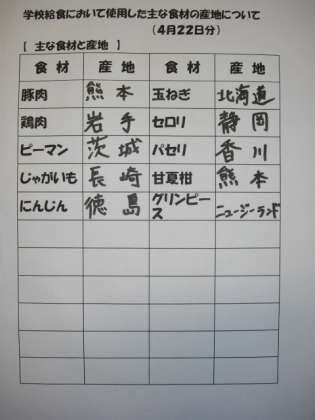 学校給食において使用した主な食材の産地について
(4月22日分)
【 主な食材と産地 】
食 材 産 地 食 材 産 地
豚肉 熊本 玉ねぎ 北海道
鶏肉 岩手 セロリ 静岡
ピーマン 茨城 パセリ 香川
じゃがいも 長崎 甘夏柑 熊本
にんじん 徳島 グリンピース ニュージーランド